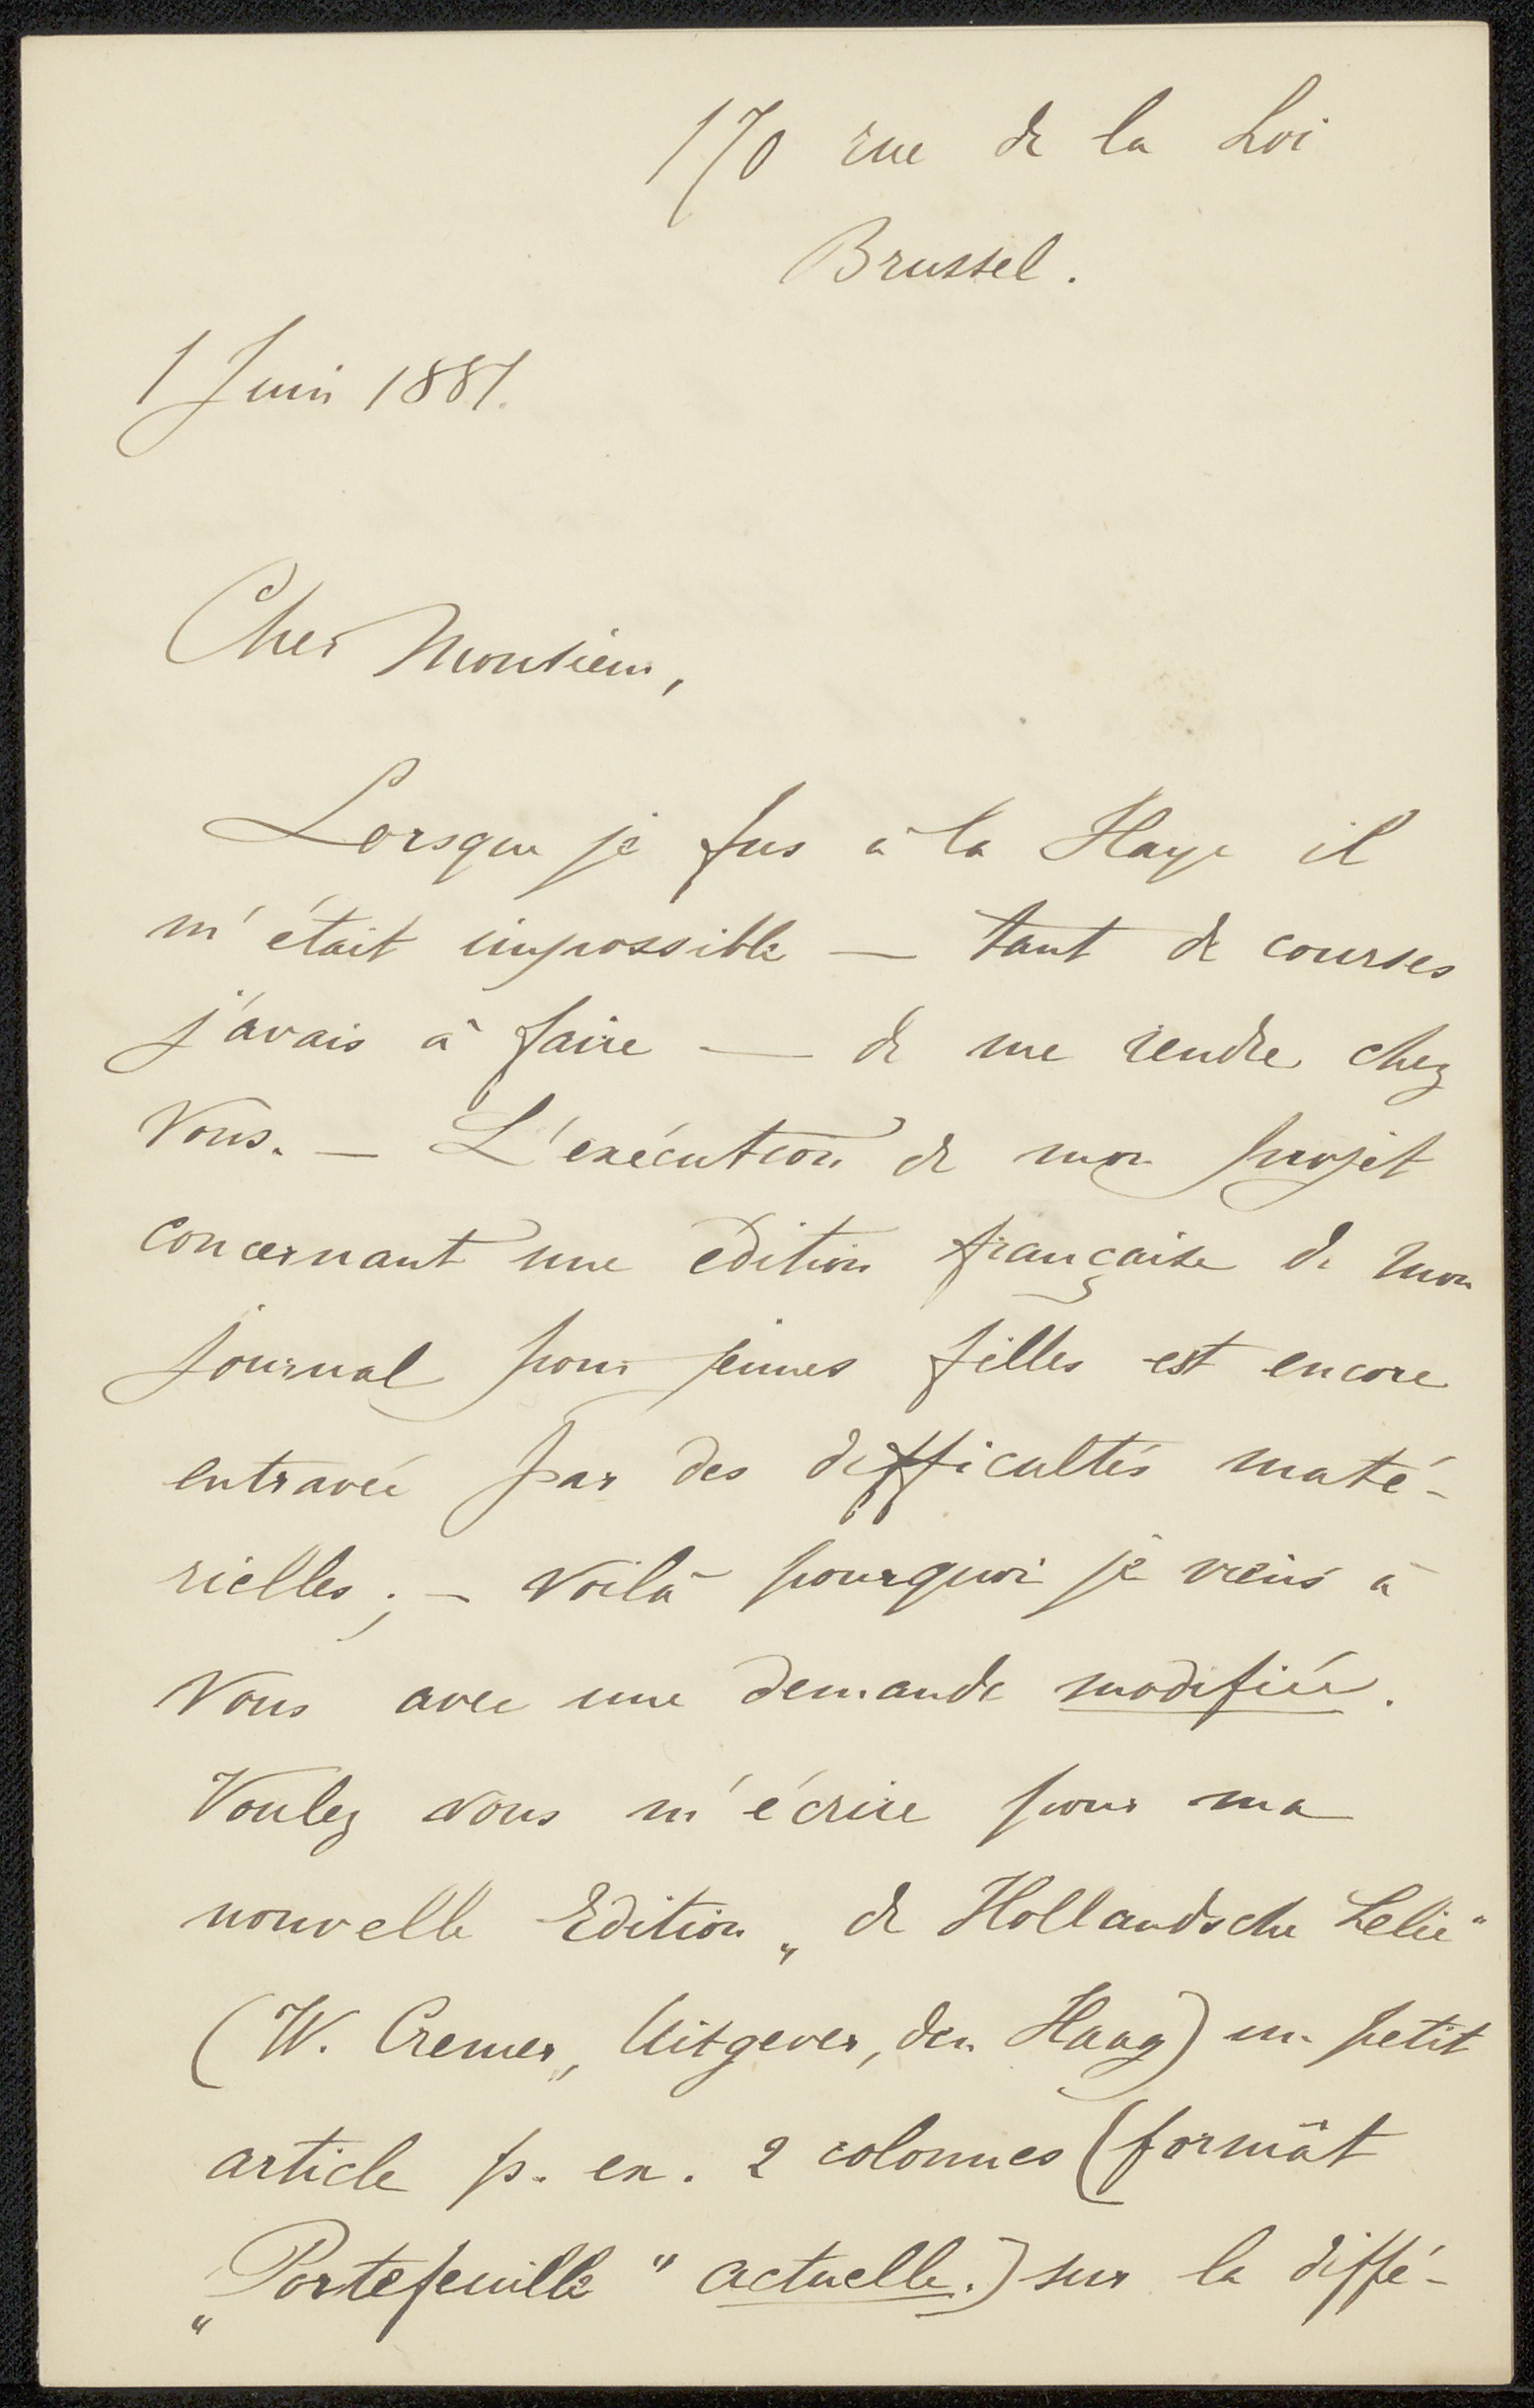 170 rue de la Loi
Brussel.
1 Juin 1887.
Cher Monsieur,
Lorsque je fus à la Haye il
m'était impossible — tant de courses
j'avais à faire — de me rendre chez
Vous. — L'exécution de mon projet
concernant une édition française de mon
journal pour jeunes filles est encore
entravée par des difficultés maté-
rielles; — voilà pourquoi je viens à
Vous avec une demande modifiée.
Voulez vous m'écrire pour ma
nouvelle Edition „de Hollandsche Lelie"
(W. Cremer, Uitgever, den Haag) un petit
article p. ex. 2 colonnes (formât
„Portefeuille" actuelle.) sur la diffé-